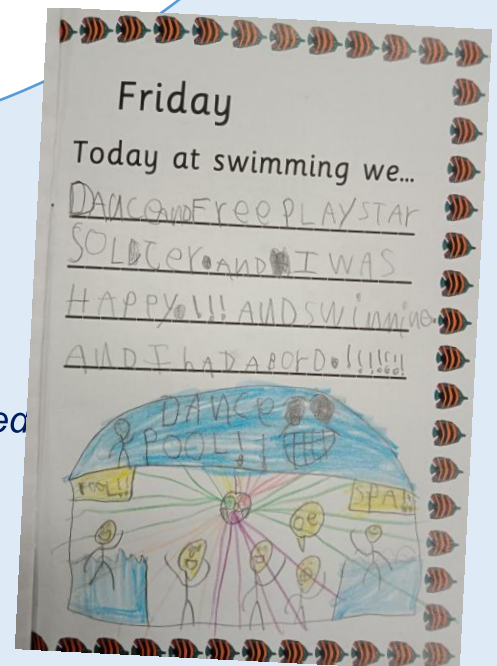 Friday
Today at swimming we...
DANCeandFreePLAYSTAr
SOLDIer.AND I WAS
HAPPY.!!! ANDSWimmine.
ANDIhADABOrD.!!!!!!
DANCe
POOL!!
POOL!!
SPA!!
ea